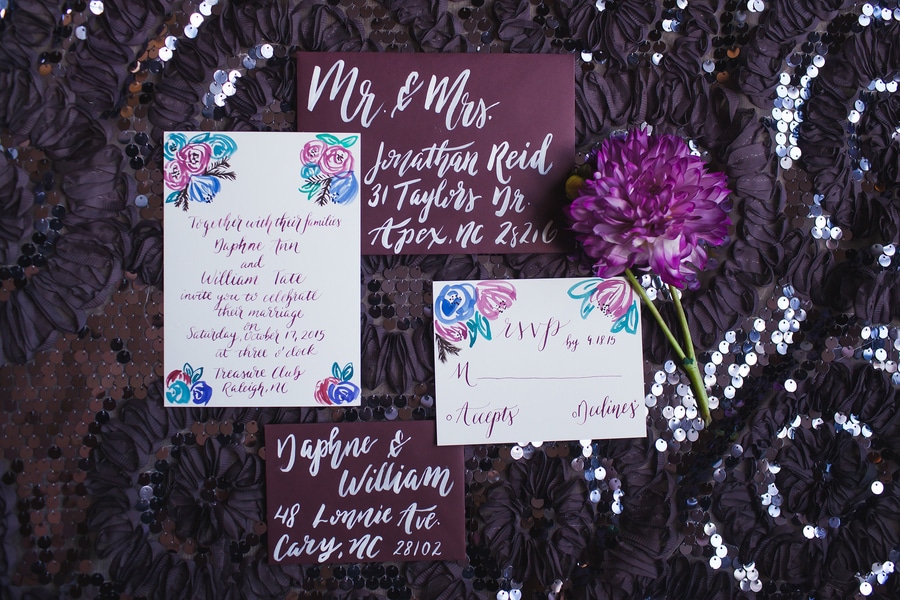 Mr. & Mrs.
Jonathan Reid
31 Taylors Dr.
Apex, NC 28210
Together with their families
Daphne Ann
and
William Tate
invite you to celebrate
their marriage
on
Saturday, October 17, 2015
at three o'clock
Treasure Club
Raleigh, NC
rsvp
by 9.18.15
M
Accepts
Declines
Daphne &
William
48 Lonnie Ave.
Cary, NC 28102